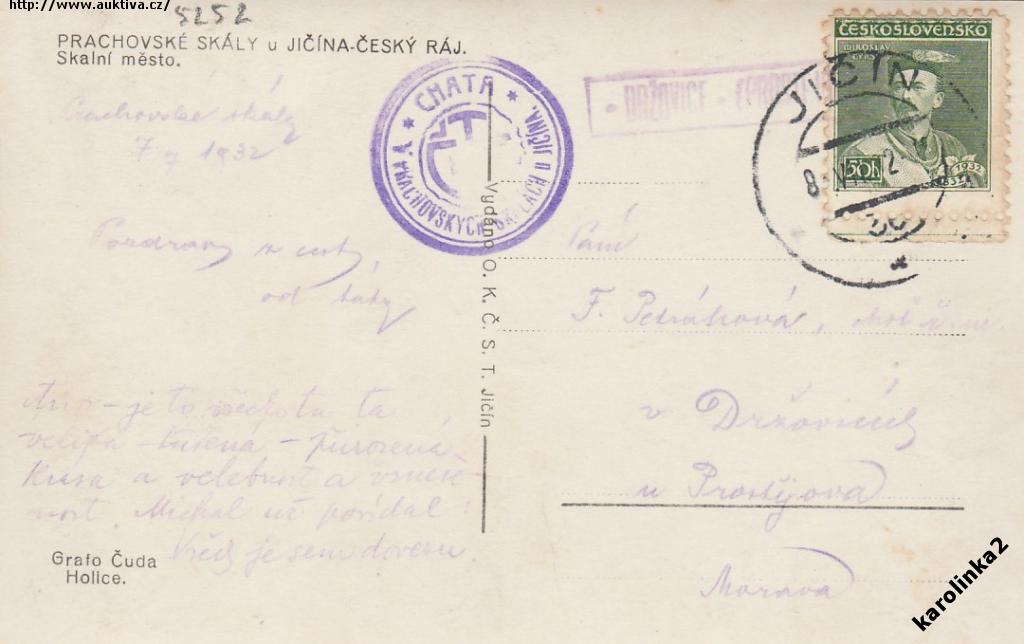 http://www.auktiva.cz/
5252
PRACHOVSKÉ SKÁLY u JIČÍNA-ČESKÝ RÁJ.
Skalní město.
Prachovské skály
1932
Pozdravy z cesty
od táty
je to všechno ta
velika - - přirozená
Krasa a velebnost a vznese-
nost. Michal už povídal:
je sem dovezu.
Grafo Čuda
Holice.
CHATA
V PRACHOVSKÝCH SKALÁCH U JIČÍNA.
Vydáno O. K. Č. S. T. Jičín
DRŽOVICE -
ČESKOSLOVENSKO
MIROSLAV
TYRŠ
50h
1932
JIČÍN
8
Paní
F. Petráková,
v Držovicích
u Prostějova
Morava
karolinka2